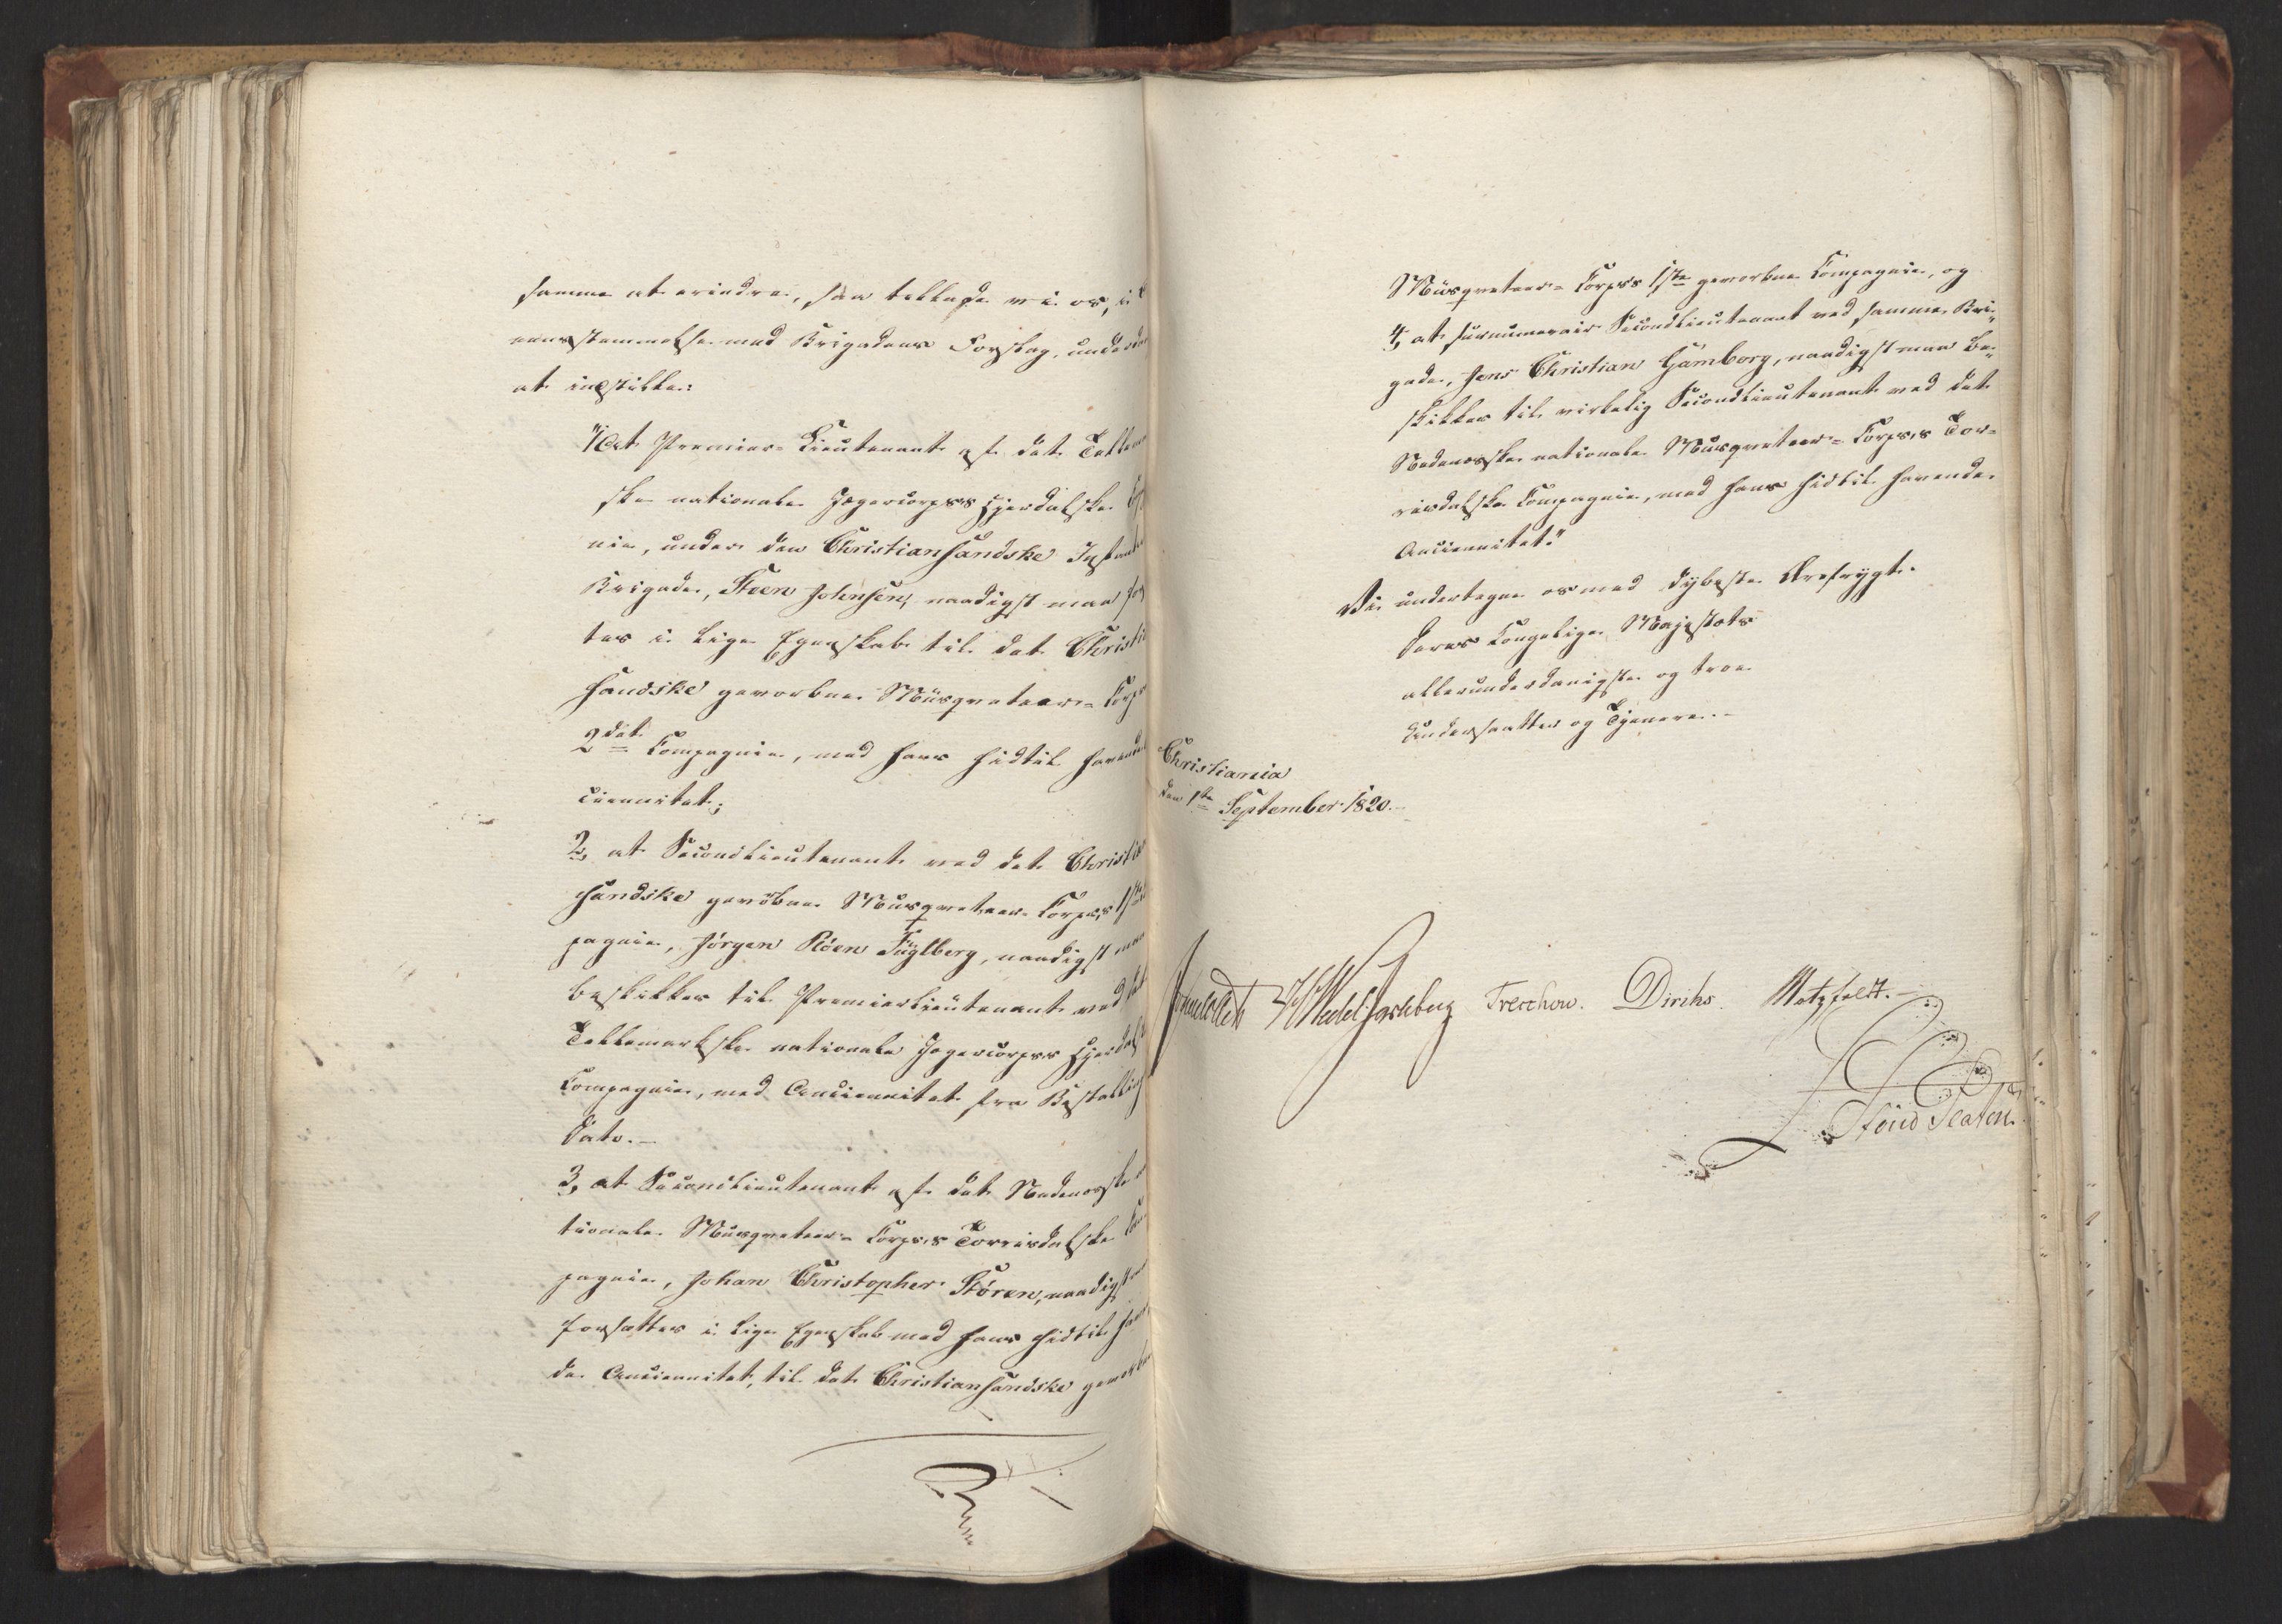 samme at erindre, saa tillade vi os, i
eensstemmelse med Brigadens Forslag, underda
at indstille:
"1, At Premier-Lieutenant af det Telleme
ske nationale Jægercorpses Hjerdalske Co
nie, under den Christiansandske Infante
Brigade, Steen Johnsen, naadigst maa for
tes i lige Egenskab til det Christi
sandske gevorbne Musqueteer-Corp
2det Compagnie, med hans hidtil havende
ciennitet;
2, at Secondlieutenant ved det Christia
sandske gevorbne Musqueteer-Corpses 1ste
pagnie, Jörgen Röen Fuglberg, naadigst maa
beskikkes til Premierlieutenant ved det
Tellemarkske nationale Jægercorpses Hjerdalsk
Compagnie, med Anciennitet fra Bestalling
Dato.-
3, at Secondlieutenant af det Nedenesske
tionale Musqueteer-Corpses Torrisdalske Com
pagnie, Johan Christopher Stören, naadigst
forsættes i lige Egenskab med hans hidtil haven
de Anciennitet, til det Christiansandske gevorbn
Musqueteer-Corpses 1ste gevorbne Compagnie, og
4, at surnumerair Secondlieutenant ved samme Bri-
gade, Jens Christian Hamborg, naadigst maa be-
skikkes til virkelig Secondlieutenant ved det
Nedenesske nationale Musqueteer-Corpses Tor-
risdalske Compagnie, med hans hidtil havende
Anciennitet."
Vi undertegne os med dybeste Ærefrygt.
Deres Kongelige Majestæts
allerunderdanigste og troe
Undersaatter og Tjenere.-
Christiania
den 1ste September 1820.-
Sommerfeldt Wedel Jarlsberg Treschow. Diriks. Motzfeldt.-